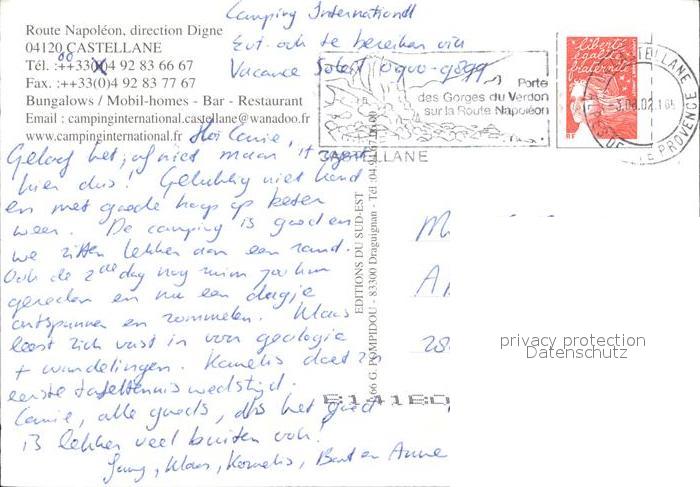 Camping International
Evt. ook te bereiken via
Vacance Soleil 0900-9899
Route Napoléon, direction Digne
04120 CASTELLANE
00
Tél. :++33(0)4 92 83 66 67
Fax. :++33(0)4 92 83 77 67
Bungalows / Mobil-homes - Bar - Restaurant
Email : campinginternational.castellane@wanadoo.fr
www.campinginternational.fr
Porte
des Gorges du Verdon
sur la Route Napoléon
CASTELLANE
liberté
égalité
fraternité
RF
CASTELLANE
ALPES DE HTE PROVENCE
Hoi Corrie,
Geloof het, of niet maar, it
hier dus! Gelukkig niet
en met goede hoop op beter
weer. De camping is goed en
we zitten lekker aan een rand.
Ook de 2de dag nog ruim 700 km
gereden en nu een dagje
ontspannen en rommelen. Klaas
leest zich vast in voor geologie
+ wandelingen. Kornelis doet z'n
eerste tafeltenniswedstijd.
Corrie, alle goeds,
is lekker veel buiten ook!
Klaas, Kornelis, Bart en Anne
EDITIONS DU SUD-EST
66 G. POMPIDOU - 83300 Draguignan - Tél.
M
A
28
privacy protection
Datenschutz